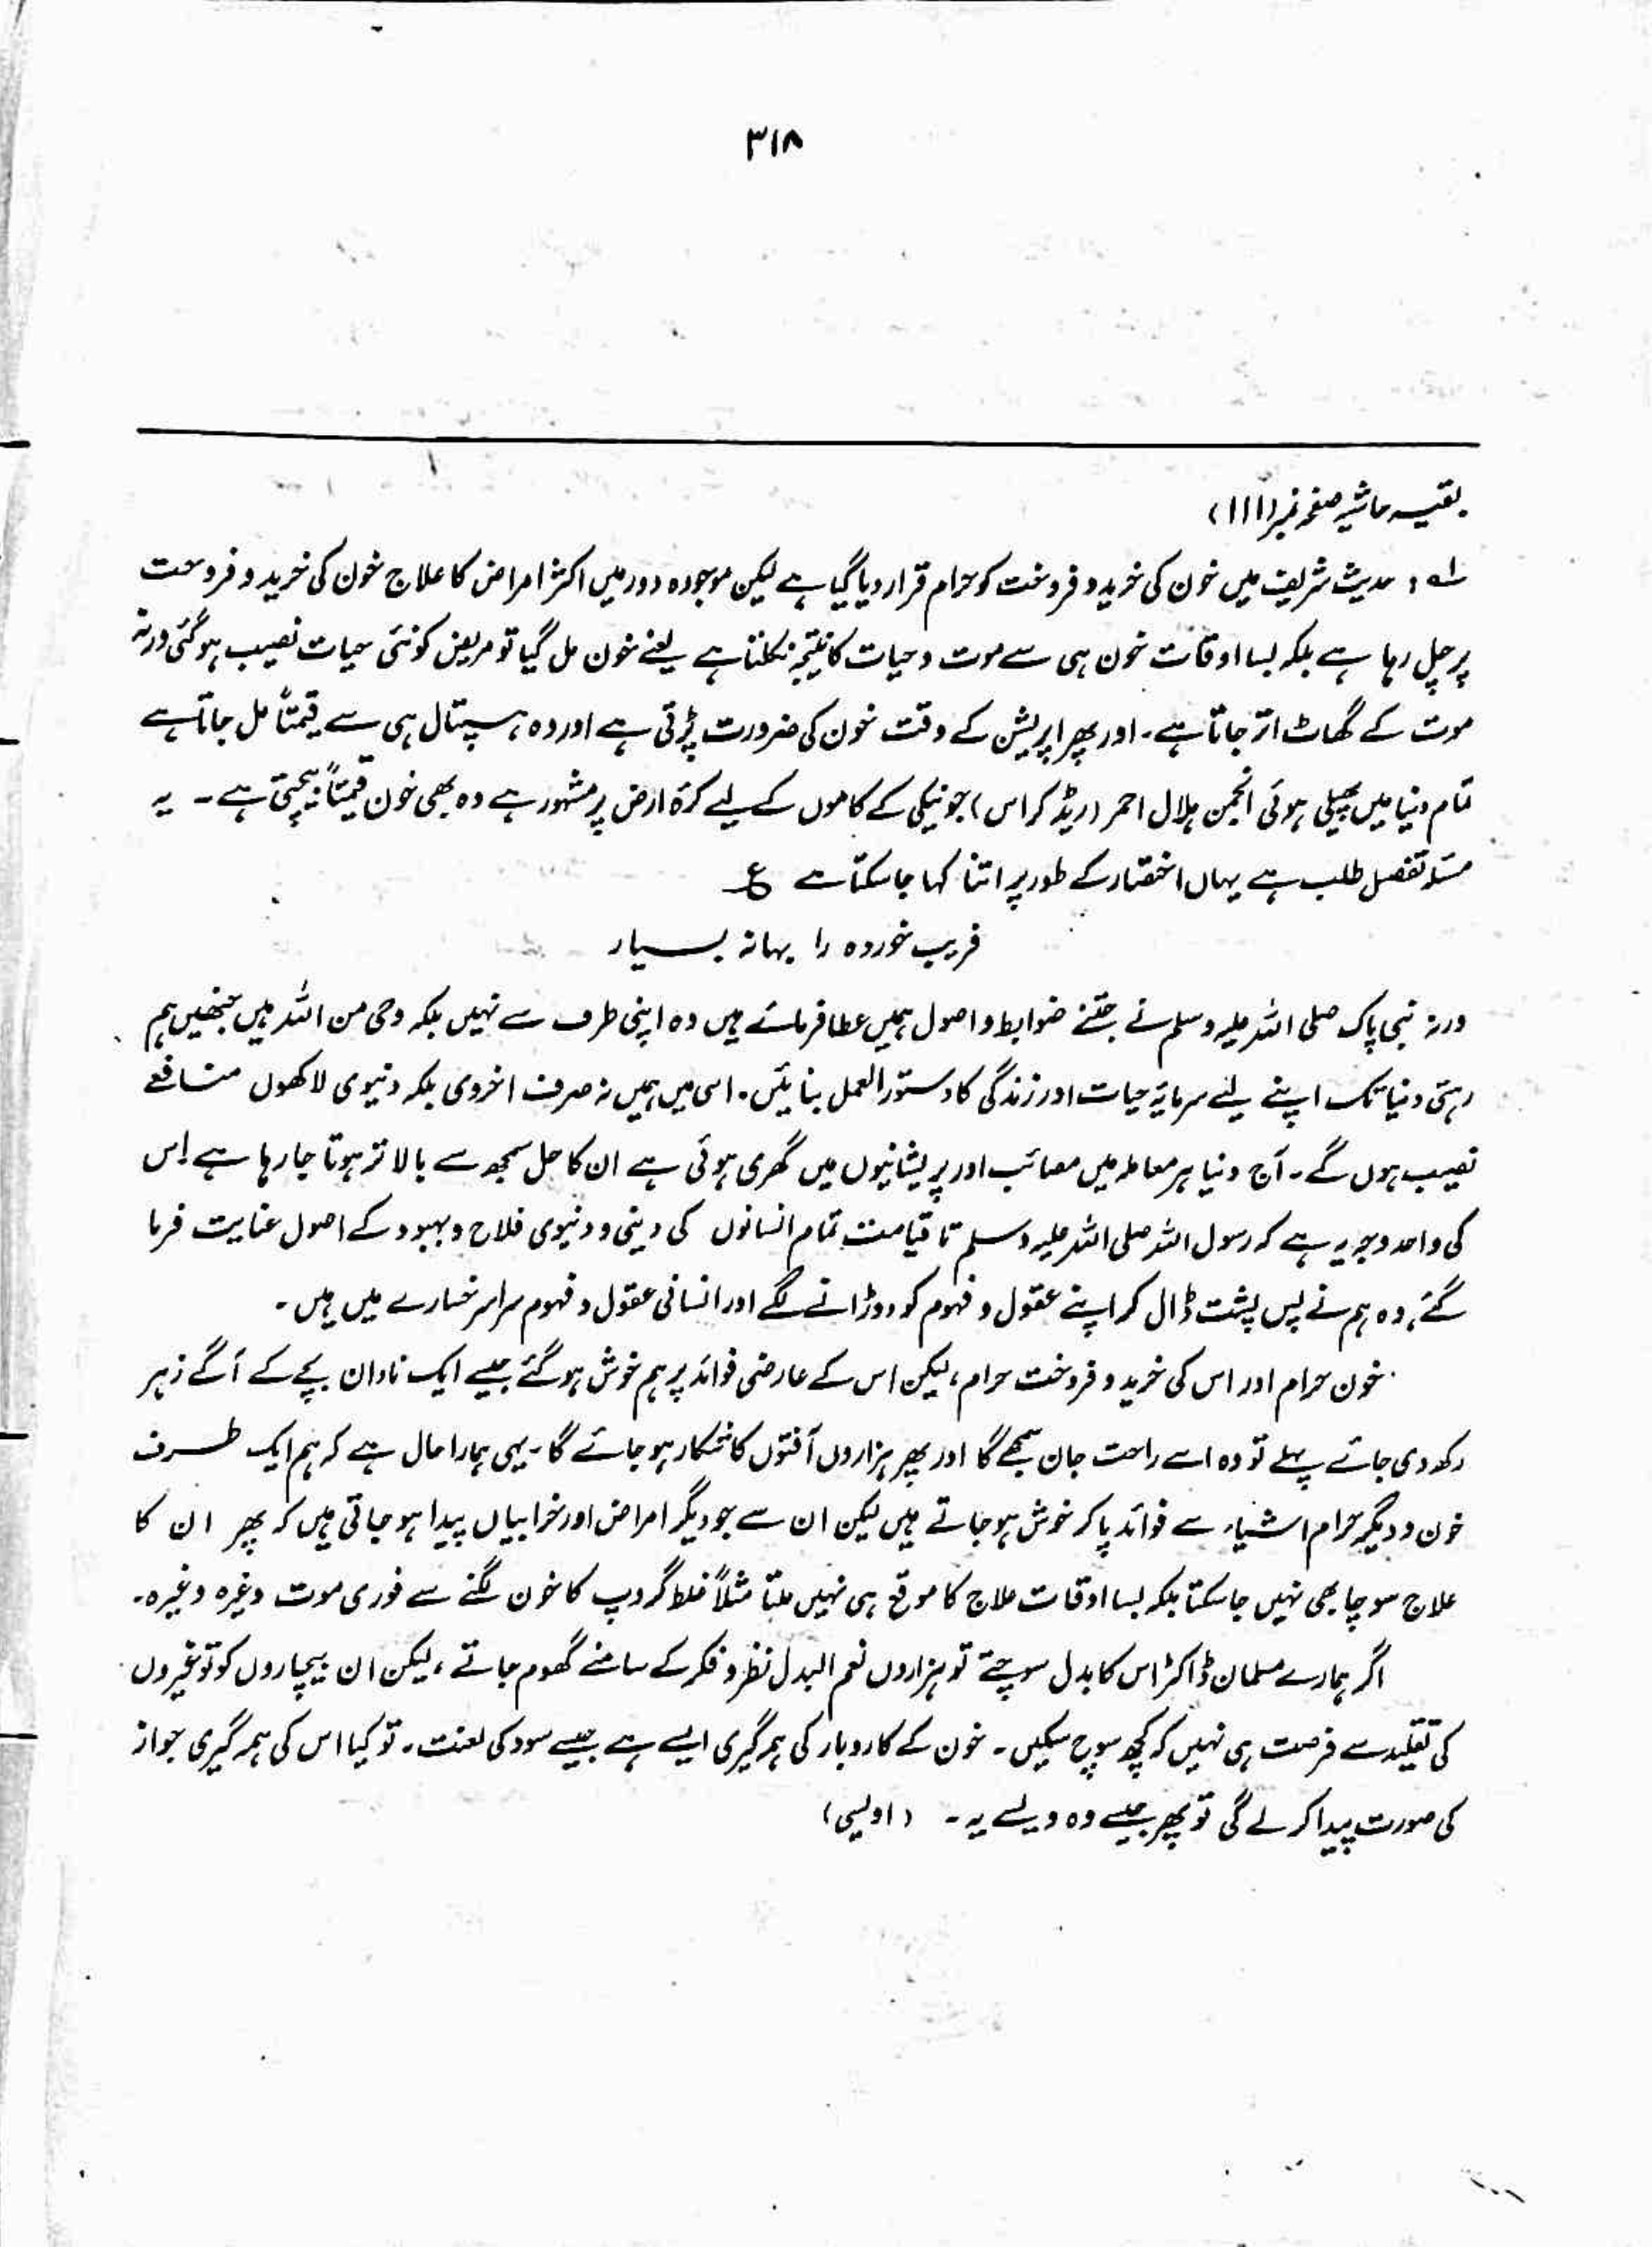 ۳۱۸
بقیہ حاشیہ صفحہ نمبر (۱۱۱)
لہ : حدیث شریف میں خون کی خرید و فروخت کو حرام قرار دیا گیا ہے لیکن موجودہ دور میں اکثر امراض کا علاج خون کی خرید و فروخت
پر چل رہا ہے بلکہ بسا اوقات خون ہی سے موت و حیات کا نتیجہ نکلتا ہے یعنے خون مل گیا تو مریض کو نئی حیات نصیب ہوگئی ورنہ
موت کے گھاٹ اتر جاتا ہے۔ اور پھر اپریشن کے وقت خون کی ضرورت پڑتی ہے اور وہ ہسپتال ہی سے قیمتاً مل جاتا ہے
تمام دنیا میں پھیلی ہوئی انجمن ہلال احمر (ریڈ کراس) جو نیکی کے کاموں کے لیے کرۂ ارض پر مشہور ہے وہ بھی خون قیمتاً بیچتی ہے۔ یہ
مسئلہ تفصل طلب ہے یہاں اختصار کے طور پر اتنا کہا جا سکتا ہے ع
فریب خوردہ را بہانہ بسیار
ورنہ نبی پاک صلی اللہ علیہ وسلم نے جتنے ضوابط و اصول ہمیں عطا فرمائے ہیں وہ اپنی طرف سے نہیں بلکہ وحی من اللہ ہیں جنھیں ہم
رہتی دنیا تک اپنے لیے سرمایۂ حیات اور زندگی کا دستور العمل بنائیں۔ اسی میں ہمیں نہ صرف اخروی بلکہ دنیوی لاکھوں منافعے
نصیب ہوں گے۔ آج دنیا ہر معاملہ میں مصائب اور پریشانیوں میں گھری ہوئی ہے ان کا حل سمجھ سے بالاتر ہوتا جا رہا ہے اس
کی واحد وجہ یہ ہے کہ رسول اللہ صلی اللہ علیہ وسلم تا قیامت تمام انسانوں کی دینی و دنیوی فلاح و بہبود کے اصول عنایت فرما
گئے، وہ ہم نے پس پشت ڈال کر اپنے عقول و فہوم کو دوڑانے لگے اور انسانی عقول و فہوم سراسر خسارے میں ہیں۔
خون حرام اور اس کی خرید و فروخت حرام، لیکن اس کے عارضی فوائد پر ہم خوش ہو گئے جیسے ایک نادان بچے کے آگے زہر
رکھ دی جائے پہلے تو وہ اسے راحت جان سمجھے گا اور پھر ہزاروں آفتوں کا شکار ہو جائے گا۔ یہی ہمارا حال ہے کہ ہم ایک طرف
خون و دیگر حرام اشیاء سے فوائد پا کر خوش ہو جاتے ہیں لیکن ان سے جو دیگر امراض اور خرابیاں پیدا ہو جاتی ہیں کہ پھر ان کا
علاج سوچا بھی نہیں جا سکتا بلکہ بسا اوقات علاج کا موقع ہی نہیں ملتا مثلاً غلط گروپ کا خون لگنے سے فوری موت وغیرہ وغیرہ۔
اگر ہمارے مسلمان ڈاکٹر اس کا بدل سوچتے تو ہزاروں نعم البدل نظر و فکر کے سامنے گھوم جاتے، لیکن ان بیچاروں کو تو غیروں
کی تقلید سے فرصت ہی نہیں کہ کچھ سوچ سکیں۔ خون کے کاروبار کی ہمہ گیری ایسے ہے جیسے سود کی لعنت۔ تو کیا اس کی ہمہ گیری جواز
کی صورت پیدا کر لے گی تو پھر جیسے وہ ویسے یہ۔ (اویسی)